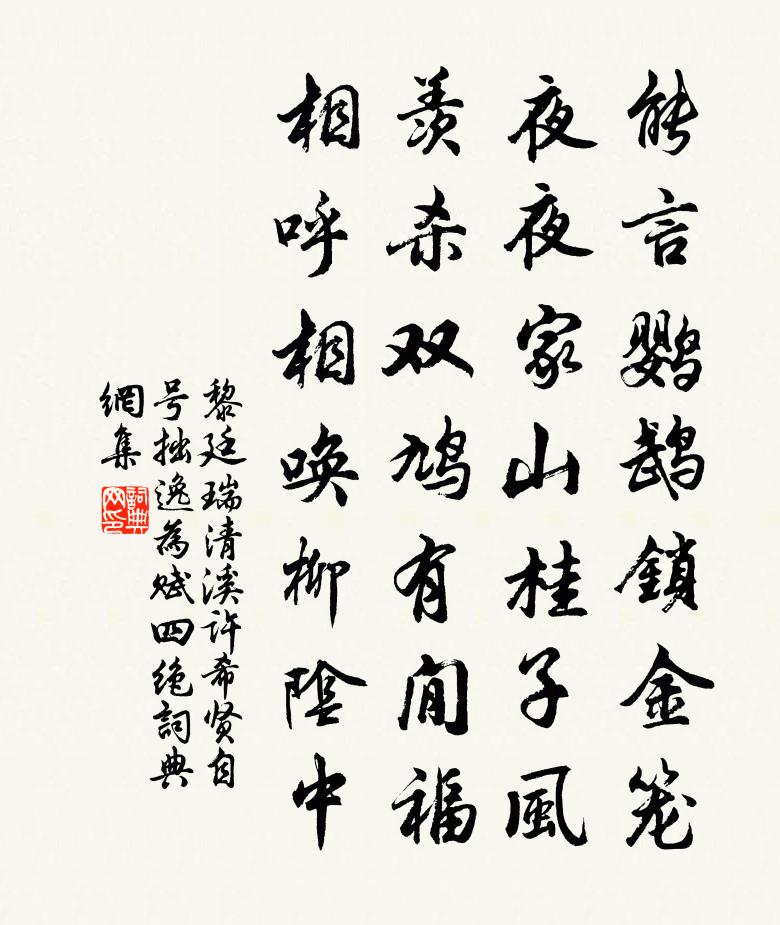 能言鹦鹉鎖金笼
夜夜家山桂子風
羨杀双鳩有闲福
相呼相唤柳陰中
黎廷瑞清溪许希贤自
号拙逸為赋四绝詞典
網集
詞典
网印